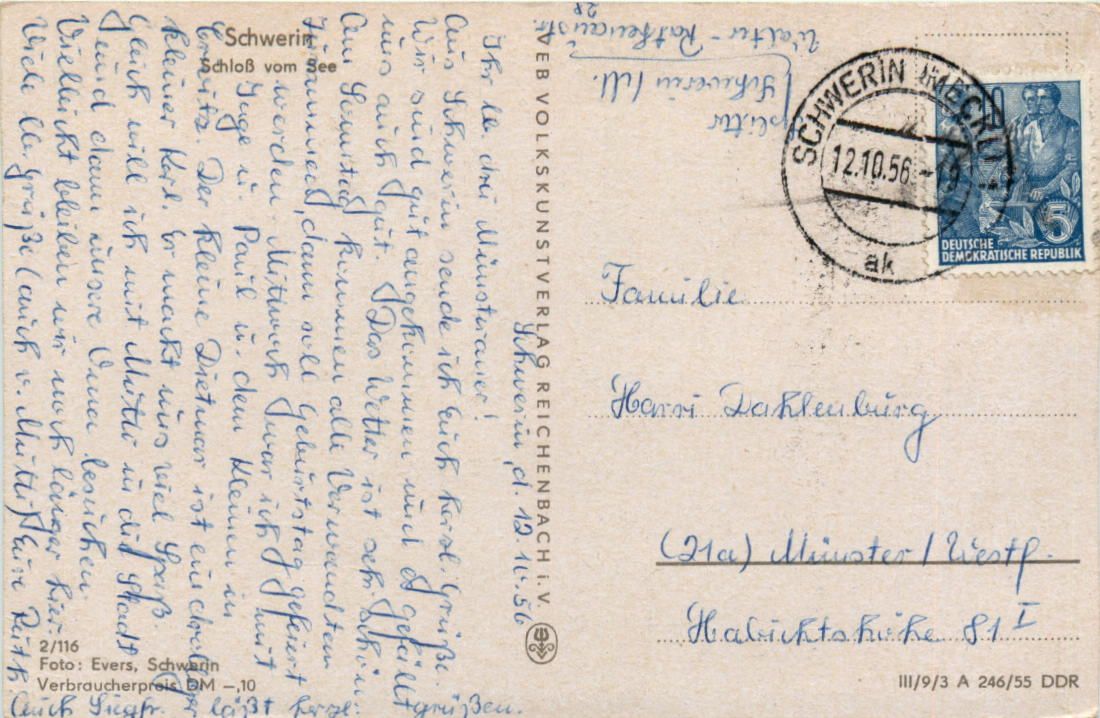 Schwerin
Schloß vom See
Schwerin, d. 12.10.56
Ihr lb. drei Münsteraner!
Aus Schwerin sende ich Euch herzl. Grüße.
Wir sind gut angekommen und es gefällt
uns auch gut. Das Wetter ist sehr schön.
Am Sonntag kommen alle Verwandten
zusammen, dann soll Geburtstag gefeiert
werden. Mittwoch war ich mit
Inge u. Paul u. den Kleinen in
. Der kleine Dietmar ist ein drolliger
kleiner Kerl. Er macht uns viel Spaß.
Gleich will ich mit Mutti in die Stadt
und dann unsere Omen besuchen.
Vielleicht bleiben wir noch länger hier.
Viele lb. Grüße (auch v. Mutti) Eure Ruth
Auch Siegfr. läßt herzl. grüßen.
2/116
Foto: Evers, Schwerin
Verbraucherpreis DM –,10
VEB VOLKSKUNSTVERLAG REICHENBACH i. V.
Schwerin
Walter-Rathenaustr.
28
SCHWERIN (MECKL)
12.10.56.-19
ak
DEUTSCHE
DEMOKRATISCHE REPUBLIK
5
Familie
Harri Dahlenburg
(21a) Münster/Westf.
Habichtshöhe 81 I
III/9/3 A 246/55 DDR